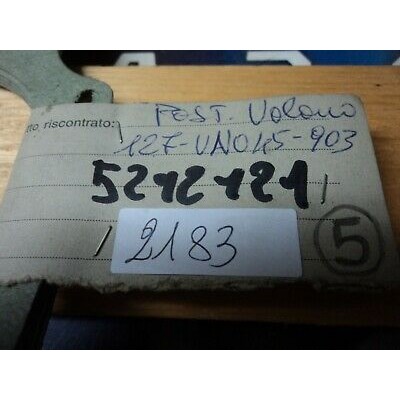 POST. Volano
tto riscontrato:
127-UNO45-903
5212121
2183
5